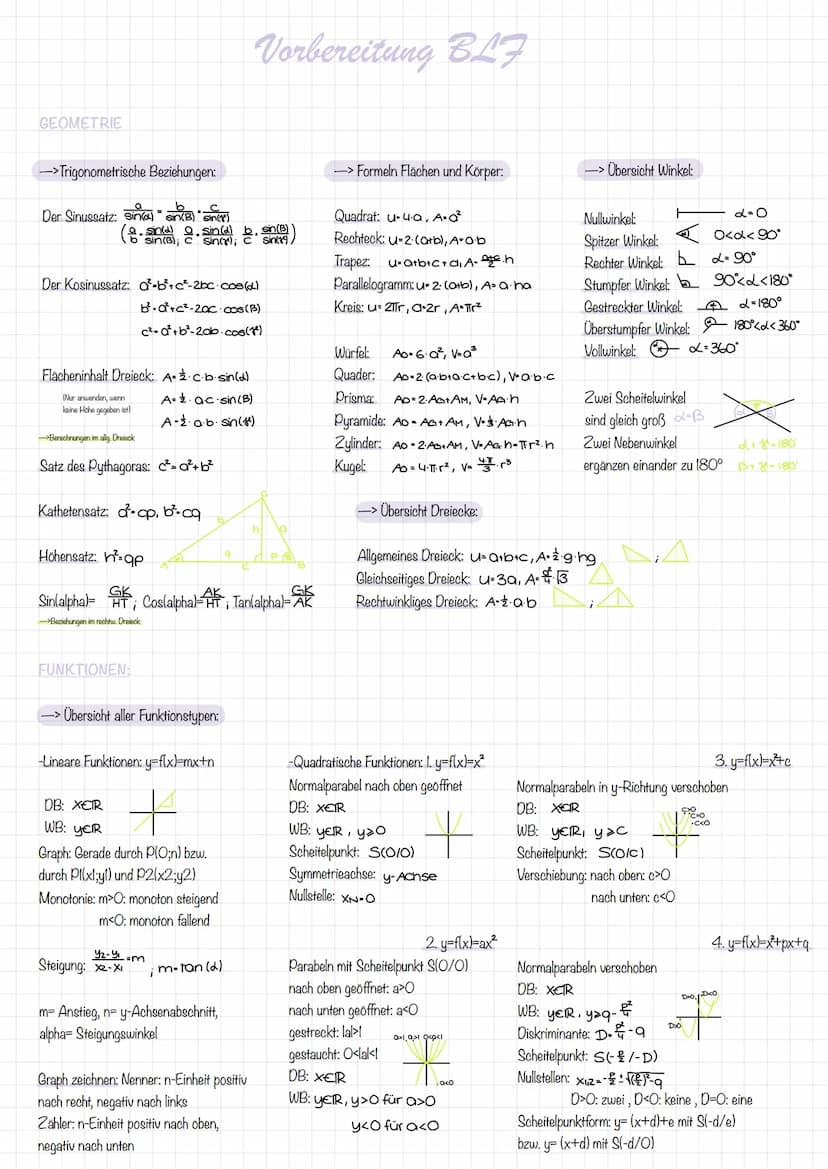 Vorbereitung BLF
GEOMETRIE
—>Trigonometrische Beziehungen:
Der Sinussatz: a/sin(α) = b/sin(β) = c/sin(γ)
(a/b = sin(α)/sin(β); a/c = sin(α)/sin(γ); b/c = sin(β)/sin(γ))
Der Kosinussatz: a²=b²+c²-2bc·cos(α)
b²=a²+c²-2ac·cos(β)
c²=a²+b²-2ab·cos(γ)
Flächeninhalt Dreieck: A=½·c·b·sin(α)
(Nur anwenden, wenn
keine Höhe gegeben ist!)
A=½·a·c·sin(β)
A=½·a·b·sin(γ)
—>Berechnungen im allg. Dreieck
Satz des Pythagoras: c²=a²+b²
Kathetensatz: a²=cp, b²=cq
Höhensatz: h²=qp
C
b h a
q p β
A c B
Sin(alpha)= GK/HT ; Cos(alpha)= AK/HT ; Tan(alpha)= GK/AK
—>Beziehungen im rechtw. Dreieck
—> Formeln Flächen und Körper:
Quadrat: u=4·a, A=a²
Rechteck: u=2·(a+b), A=a·b
Trapez: u=a+b+c+d, A=a+c/2·h
Parallelogramm: u=2·(a+b), A=a·ha
Kreis: u=2πr, d=2r, A=πr²
Würfel: Ao=6·a², V=a³
Quader: Ao=2(ab+ac+bc), V=a·b·c
Prisma: Ao=2·AG+AM, V=AG·h
Pyramide: Ao=AG+AM, V=⅓·AG·h
Zylinder: Ao=2·AG+AM, V=AG·h=πr²·h
Kugel: Ao=4·π·r², V=4·π/3·r³
—> Übersicht Dreiecke:
Allgemeines Dreieck: u=a+b+c, A=½·g·hg ;
Gleichseitiges Dreieck: u=3a, A=a²/4√3
Rechtwinkliges Dreieck: A=½·a·b ;
—> Übersicht Winkel:
Nullwinkel: α=0
Spitzer Winkel: 0<α<90°
Rechter Winkel: α=90°
Stumpfer Winkel: 90°<α<180°
Gestreckter Winkel: α=180°
Überstumpfer Winkel: 180°<α<360°
Vollwinkel: α=360°
Zwei Scheitelwinkel
sind gleich groß α=β
Zwei Nebenwinkel α+γ=180°
ergänzen einander zu 180° β+γ=180°
FUNKTIONEN:
—> Übersicht aller Funktionstypen:
-Lineare Funktionen: y=f(x)=mx+n
DB: x∈ℝ
WB: y∈ℝ
Graph: Gerade durch P(0;n) bzw.
durch P1(x1;y1) und P2(x2;y2)
Monotonie: m>0: monoton steigend
m<0: monoton fallend
Steigung: y2-y1/x2-x1=m ; m=tan(α)
m= Anstieg, n= y-Achsenabschnitt,
alpha= Steigungswinkel
Graph zeichnen: Nenner: n-Einheit positiv
nach recht, negativ nach links
Zähler: n-Einheit positiv nach oben,
negativ nach unten
-Quadratische Funktionen: 1. y=f(x)=x²
Normalparabel nach oben geöffnet
DB: x∈ℝ
WB: y∈ℝ, y≥0
Scheitelpunkt: S(0/0)
Symmetrieachse: y-Achse
Nullstelle: xN=0
2. y=f(x)=ax²
Parabeln mit Scheitelpunkt S(0/0)
nach oben geöffnet: a>0
nach unten geöffnet: a<0
gestreckt: |a|>1
gestaucht: 0<|a|<1
a=1, a>1 0<a<1
a<0
DB: x∈ℝ
WB: y∈ℝ, y>0 für a>0
y<0 für a<0
3. y=f(x)=x²+c
Normalparabeln in y-Richtung verschoben
DB: x∈ℝ
WB: y∈ℝ, y≥c
c>0
c=0
c<0
Scheitelpunkt: S(0/c)
Verschiebung: nach oben: c>0
nach unten: c<0
4. y=f(x)=x²+px+q
Normalparabeln verschoben
DB: x∈ℝ
WB: y∈ℝ, y≥q-p²/4
Diskriminante: D=p²/4-q
Scheitelpunkt: S(-p/2/-D)
Nullstellen: x1,2=-p/2±√(p/2)²-q
D>0: zwei , D<0: keine , D=0: eine
Scheitelpunktform: y= (x+d)+e mit S(-d/e)
bzw. y= (x+d) mit S(-d/0)